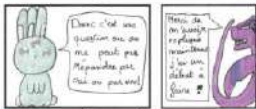 Donc c'est une
question ou on
ne peut pas
répondre par
oui ou par non!
Merci de
m'avoir
expliqué
maintenant
j'ai un
débat à
faire !